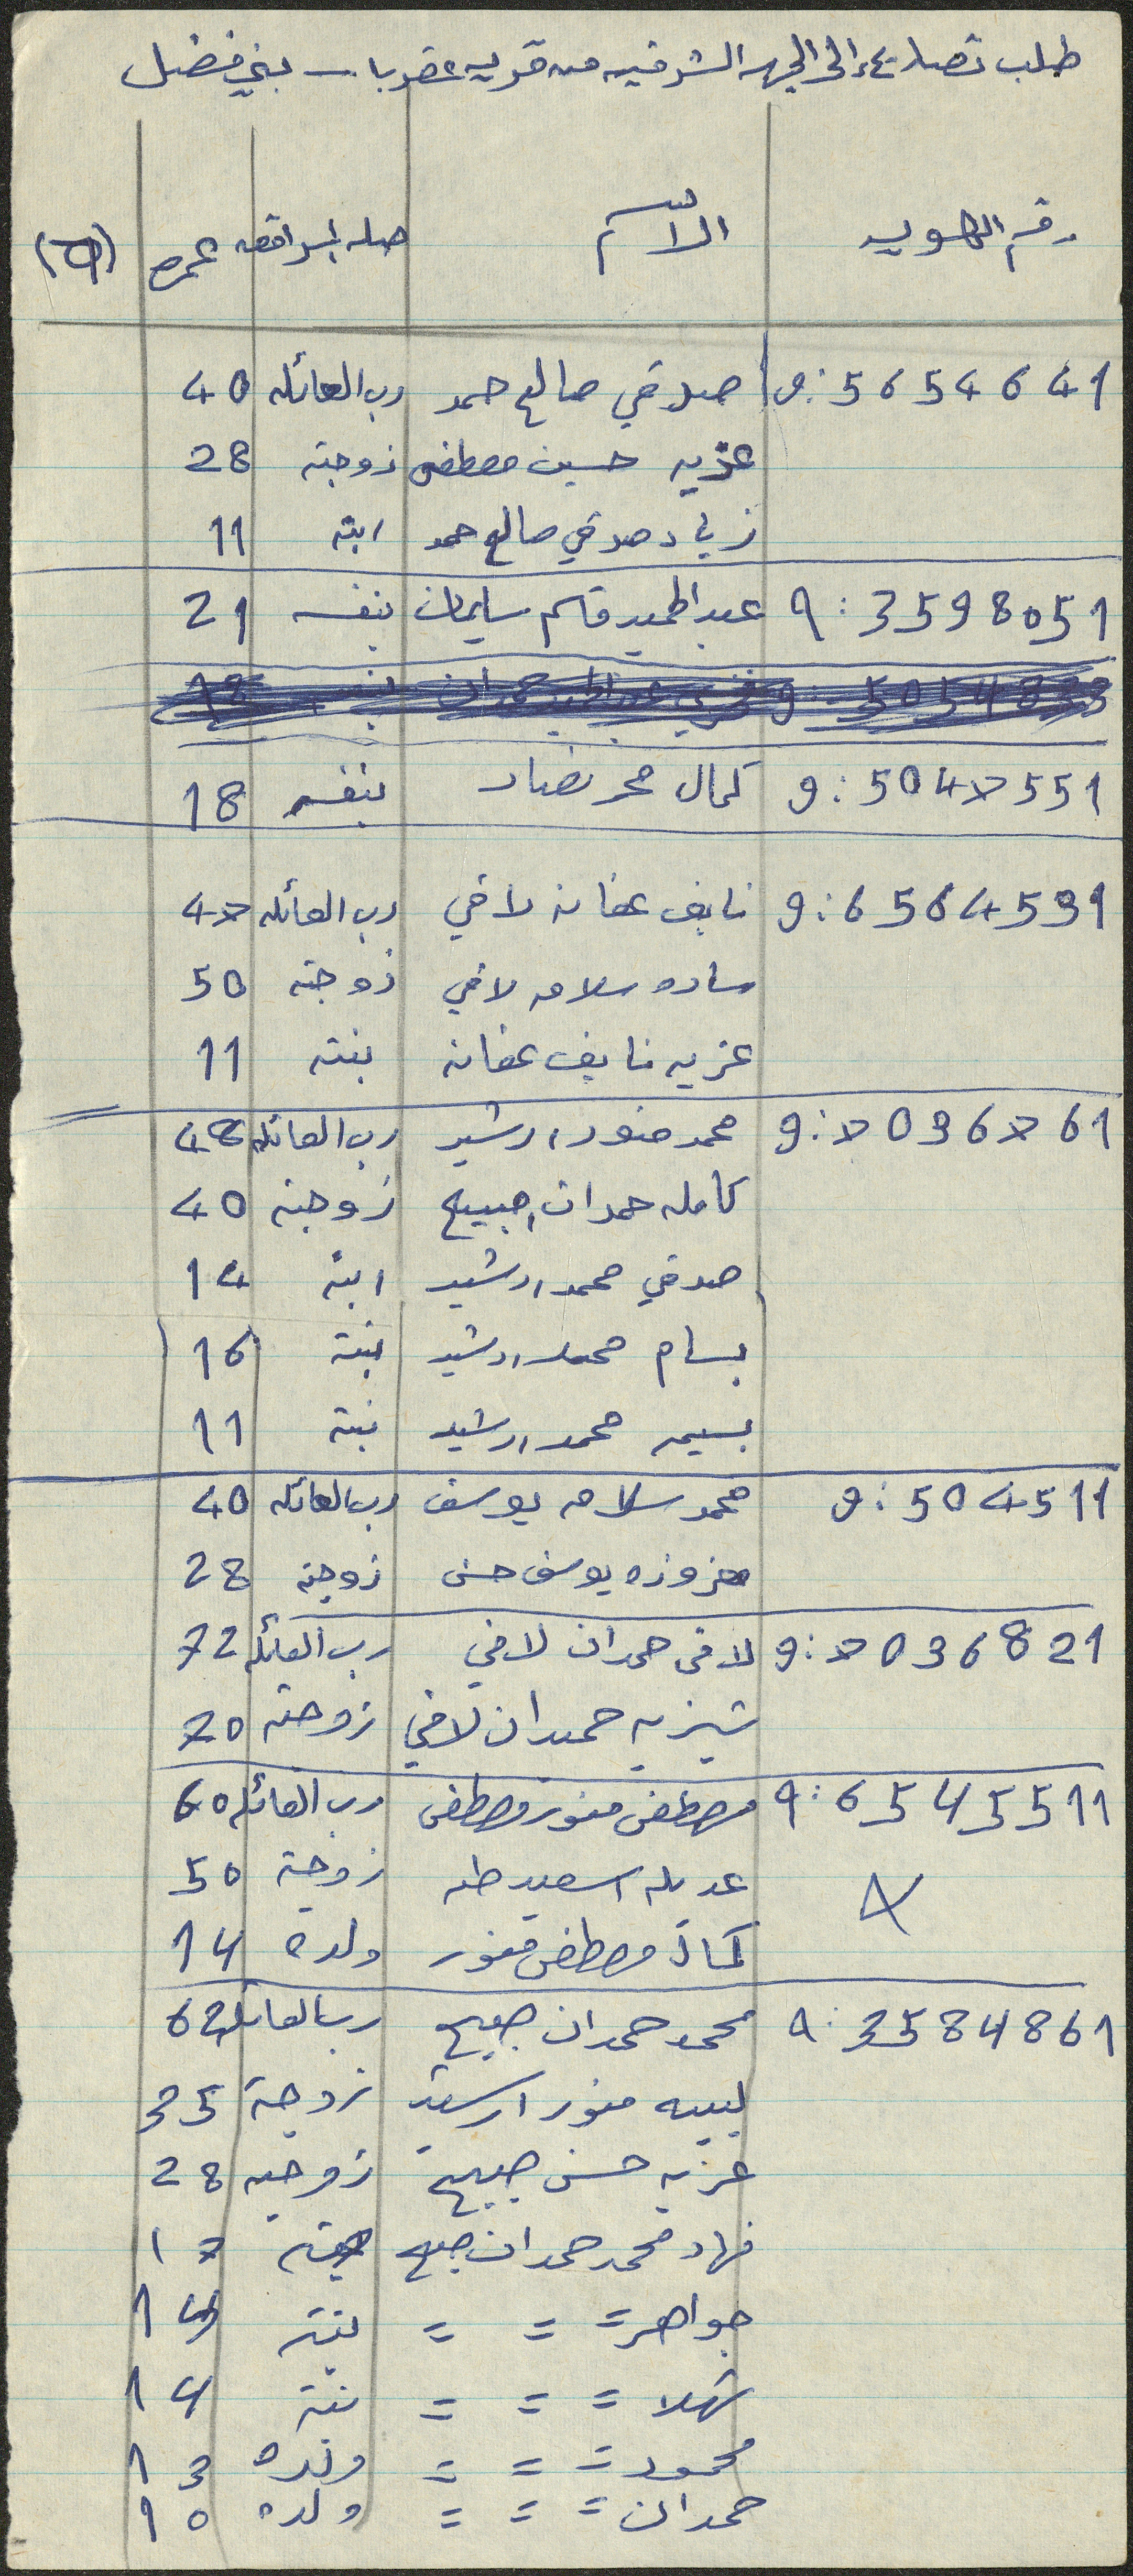 طلب تصاريح الى الجهه الشرقيه من قريه عقربا - بني فضل
رقم الهويه الاسم صله المرافقه عمره (5)
9:5654641 صدقي صالح حمد رب العائله 40
عزيه حسين مصطفى زوجته 28
زياد صدقي صالح حمد ابنه 11
9:3598051 عبد الحميد قاسم سليمان بنفسه 21
9:5047551 كمال محمد بنفسه 18
9:6564531 نايف عفانه لافي رب العائله 47
ساره سلامه لافي زوجته 50
عزيه نايف عفانه بنته 11
9:7036761 محمد منور ارشيد رب العائله 48
كامله حمدان اجبيح زوجته 40
صدقي محمد ارشيد ابنه 14
بسام محمد ارشيد بنته 16
بسيمه محمد ارشيد بنته 11
9:504511 محمد سلامه يوسف رب العائله 40
معزوزه يوسف حسن زوجته 28
9:7036821 لافي حمدان لافي رب العائله 72
حمدان لافي زوجته 70
9:6545511 مصطفى منور مصطفى رب العائله 60
عديله اسعيد طه زوجته 50
كمال مصطفى منور ولده 14
9:3584861 محمد حمدان جبيح رب العائله 62
لبيبه منور ارشيد زوجة 35
عزيه حسن جبيح زوجته 28
نهاد محمد حمدان جبيح بنته 17
جواهر = = = بنته 14
شهلا = = = بنته 14
محمود = = = ولده 13
حمدان = = = ولده 10